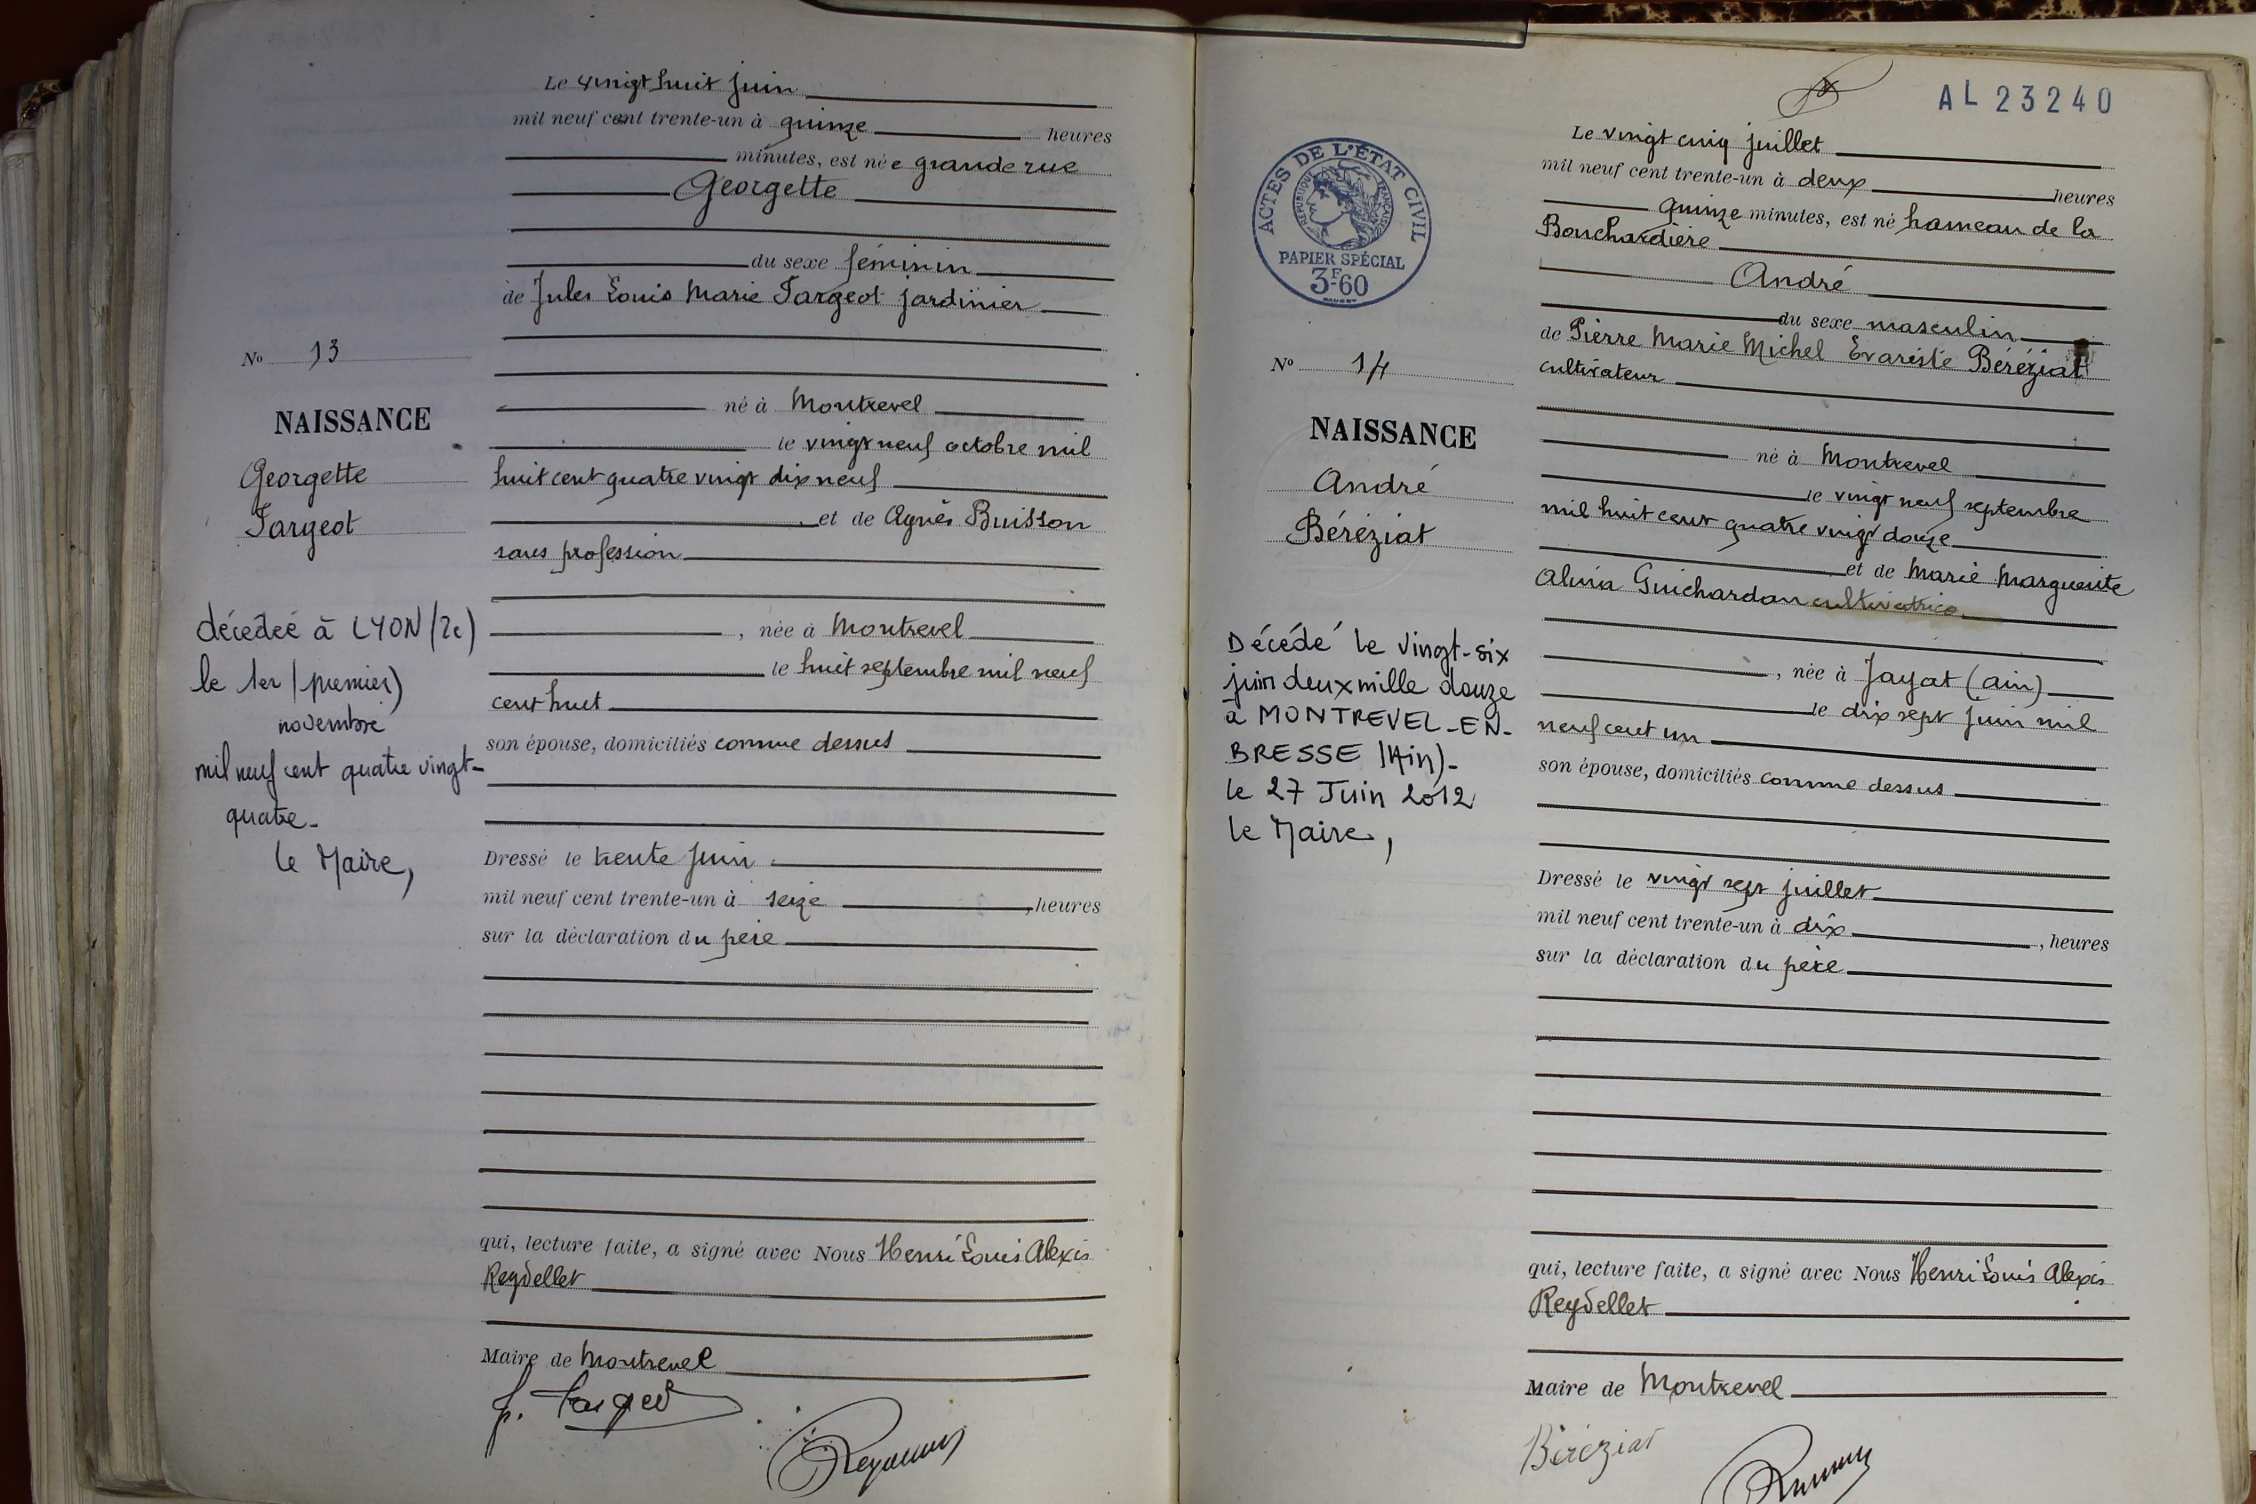 Le vingt huit juin
mil neuf cent trente-un à quinze heures
minutes, est née grande rue
Georgette
du sexe féminin
de Jules Louis Marie Fargeot jardinier
né à Montrevel
le vingt neuf octobre mil
huit cent quatre vingt dix neuf
et de Agnès Buisson
sans profession
, née à Montrevel
le huit septembre mil neuf
cent huit
son épouse, domiciliés comme dessus
Dressé le trente juin
mil neuf cent trente-un à seize , heures
sur la déclaration du père
qui, lecture faite, a signé avec Nous Henri Louis Alexis
Reydellet
Maire de Montrevel
No 13
NAISSANCE
Georgette
Fargeot
décédée à LYON (2e)
le 1er (premier)
novembre
mil neuf cent quatre vingt-
quatre_
le Maire,
AL 23240
ACTES DE L'ÉTAT CIVIL
RÉPUBLIQUE FRANÇAISE
PAPIER SPÉCIAL
3F60
Le vingt cinq juillet
mil neuf cent trente-un à deux heures
quinze minutes, est né hameau de la
Bouchardière
André
du sexe masculin
de Pierre Marie Michel Evariste Béréziat
cultivateur
né à Montrevel
le vingt neuf septembre
mil huit cent quatre vingt douze
et de Marie Marguerite
Guichardan cultivatrice
, née à Jayat (Ain)
le dix sept juin mil
neuf cent un
son épouse, domiciliés comme dessus
Dressé le vingt sept juillet
mil neuf cent trente-un à dix , heures
sur la déclaration du père
qui, lecture faite, a signé avec Nous Henri Louis Alexis
Reydellet
Maire de Montrevel
Béréziat
No 14
NAISSANCE
André
Béréziat
Décédé le vingt-six
juin deux mille douze
à MONTREVEL-EN-
BRESSE (Ain)_
le 27 Juin 2012
le Maire,